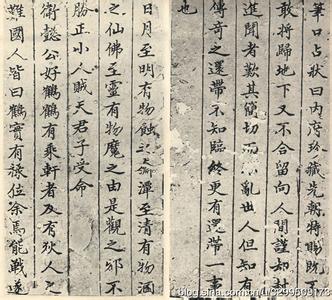 筆口占狀曰内府珍藏先朝特賜既
敢將歸地下又不合留向人間謹却
進聞者歎其簡切而不亂世人但知有
傳奇之還帶不知臨終更有還帶一
也
日月至明有物蝕之潭至清有物涸
之仙佛至靈有物魔之由是觀之邪不
勝正小人賊天君子受命
衛懿公好鶴鶴有乘軒者及有狄人之
難國人皆曰鶴實有祿位余焉能戰遂